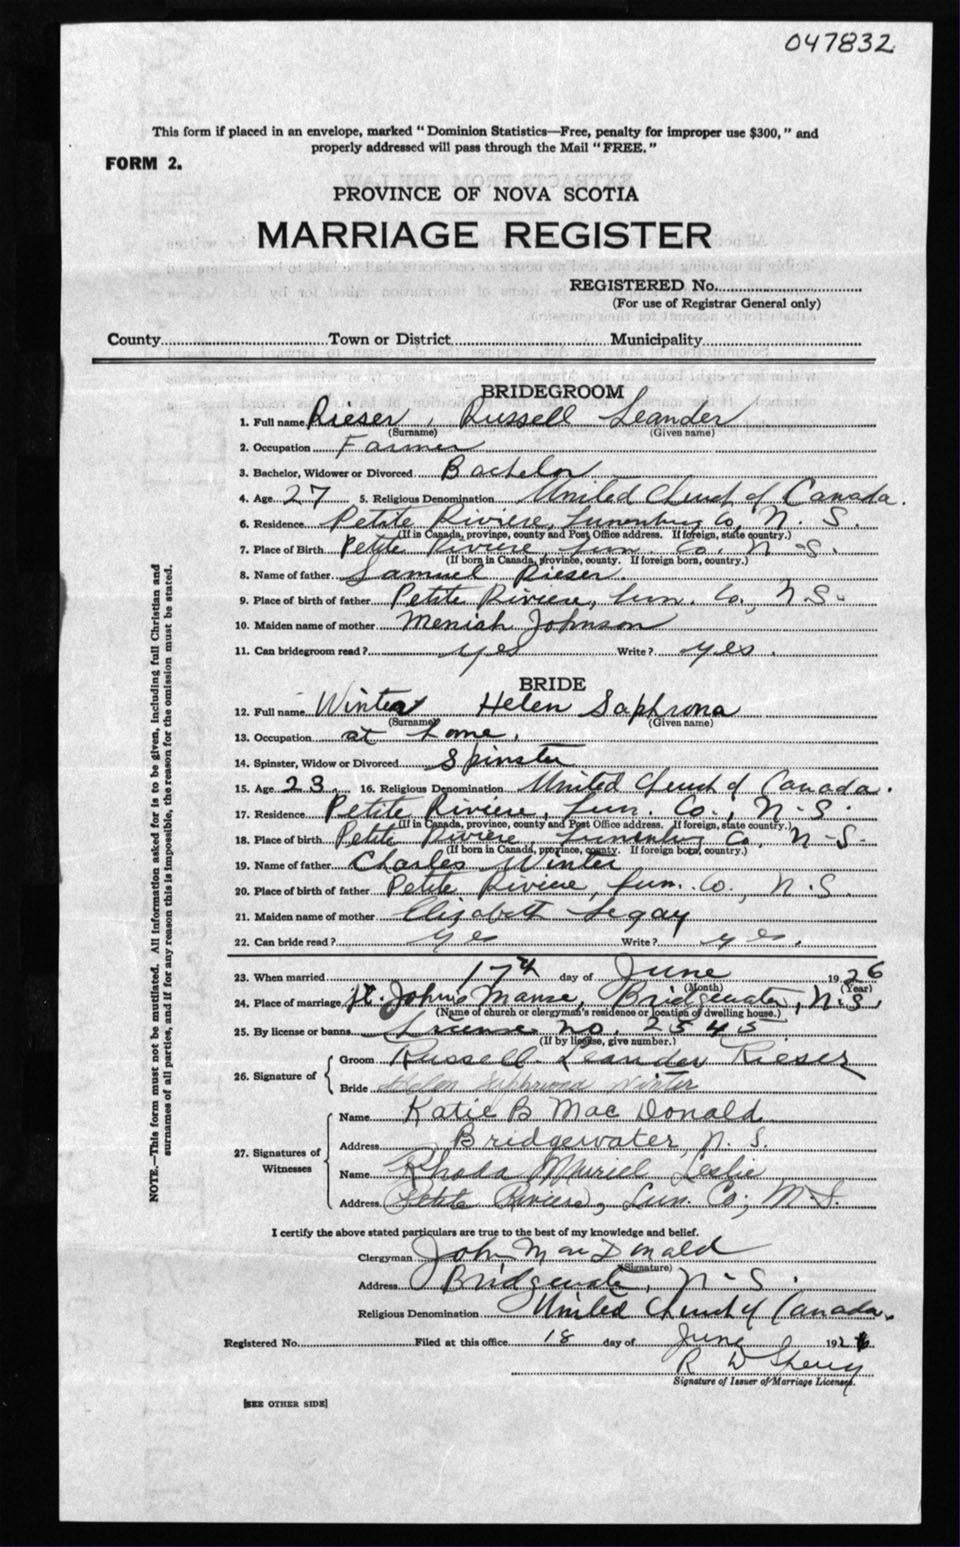 047832
This form if placed in an envelope, marked "Dominion Statistics—Free, penalty for improper use $300," and
properly addressed will pass through the Mail "FREE."
FORM 2.
PROVINCE OF NOVA SCOTIA
MARRIAGE REGISTER
REGISTERED No.
(For use of Registrar General only)
County Town or District Municipality
BRIDEGROOM
1. Full name Rieser, Russell Leander
(Surname) (Given name)
2. Occupation Farmer
3. Bachelor, Widower or Divorced Bachelor
4. Age 27 5. Religious Denomination United Church of Canada.
6. Residence Petite Riviere, Lunenburg Co, N. S.
(If in Canada, province, county and Post Office address. If foreign, state country.)
7. Place of Birth Petite Riviere, Lun. Co. N-S.
(If born in Canada, province, county. If foreign born, country.)
8. Name of father Samuel Rieser.
9. Place of birth of father Petite Riviere, Lun. Co., N-S-
10. Maiden name of mother Meniah Johnson
11. Can bridegroom read? yes Write? yes.
BRIDE
12. Full name Winter Helen Saphrona
(Surname) (Given name)
13. Occupation at home.
14. Spinster, Widow or Divorced Spinster
15. Age 23. 16. Religious Denomination United Church of Canada.
17. Residence Petite Riviere, Lun. Co., N-S.
(If in Canada, province, county and Post Office address. If foreign, state country.)
18. Place of birth Petite Riviere, Lunenburg Co, N-S-
(If born in Canada, province, county. If foreign born, country.)
19. Name of father Charles Winter
20. Place of birth of father Petite Riviere, Lun. Co., N.S.
21. Maiden name of mother Elizabeth Segay
22. Can bride read? yes Write? yes.
23. When married 17th day of June 1926
(Month) (Year)
24. Place of marriage St. John's Manse, Bridgewater, N.S.
(Name of church or clergyman's residence or location of dwelling house.)
25. By license or banns License no. 2545
(If by license, give number.)
26. Signature of
Groom Russell Leander Rieser
Bride Helen Winter
27. Signatures of Witnesses
Name Katie B Mac Donald
Address Bridgewater, N. S.
Name Rhoda Muriel Leslie
Address Petite Riviere, Lun. Co; N.S.
I certify the above stated particulars are true to the best of my knowledge and belief.
Clergyman John MacDonald
(Signature)
Address Bridgewater, N-S.
Religious Denomination United Church of Canada.
Registered No. Filed at this office 18 day of June 1926
R D
Signature of Issuer of Marriage Licenses.
[SEE OTHER SIDE]
NOTE.—This form must not be mutilated. All information asked for is to be given, including full Christian and
surnames of all parties, and if for any reason this is impossible, the reason for the omission must be stated.